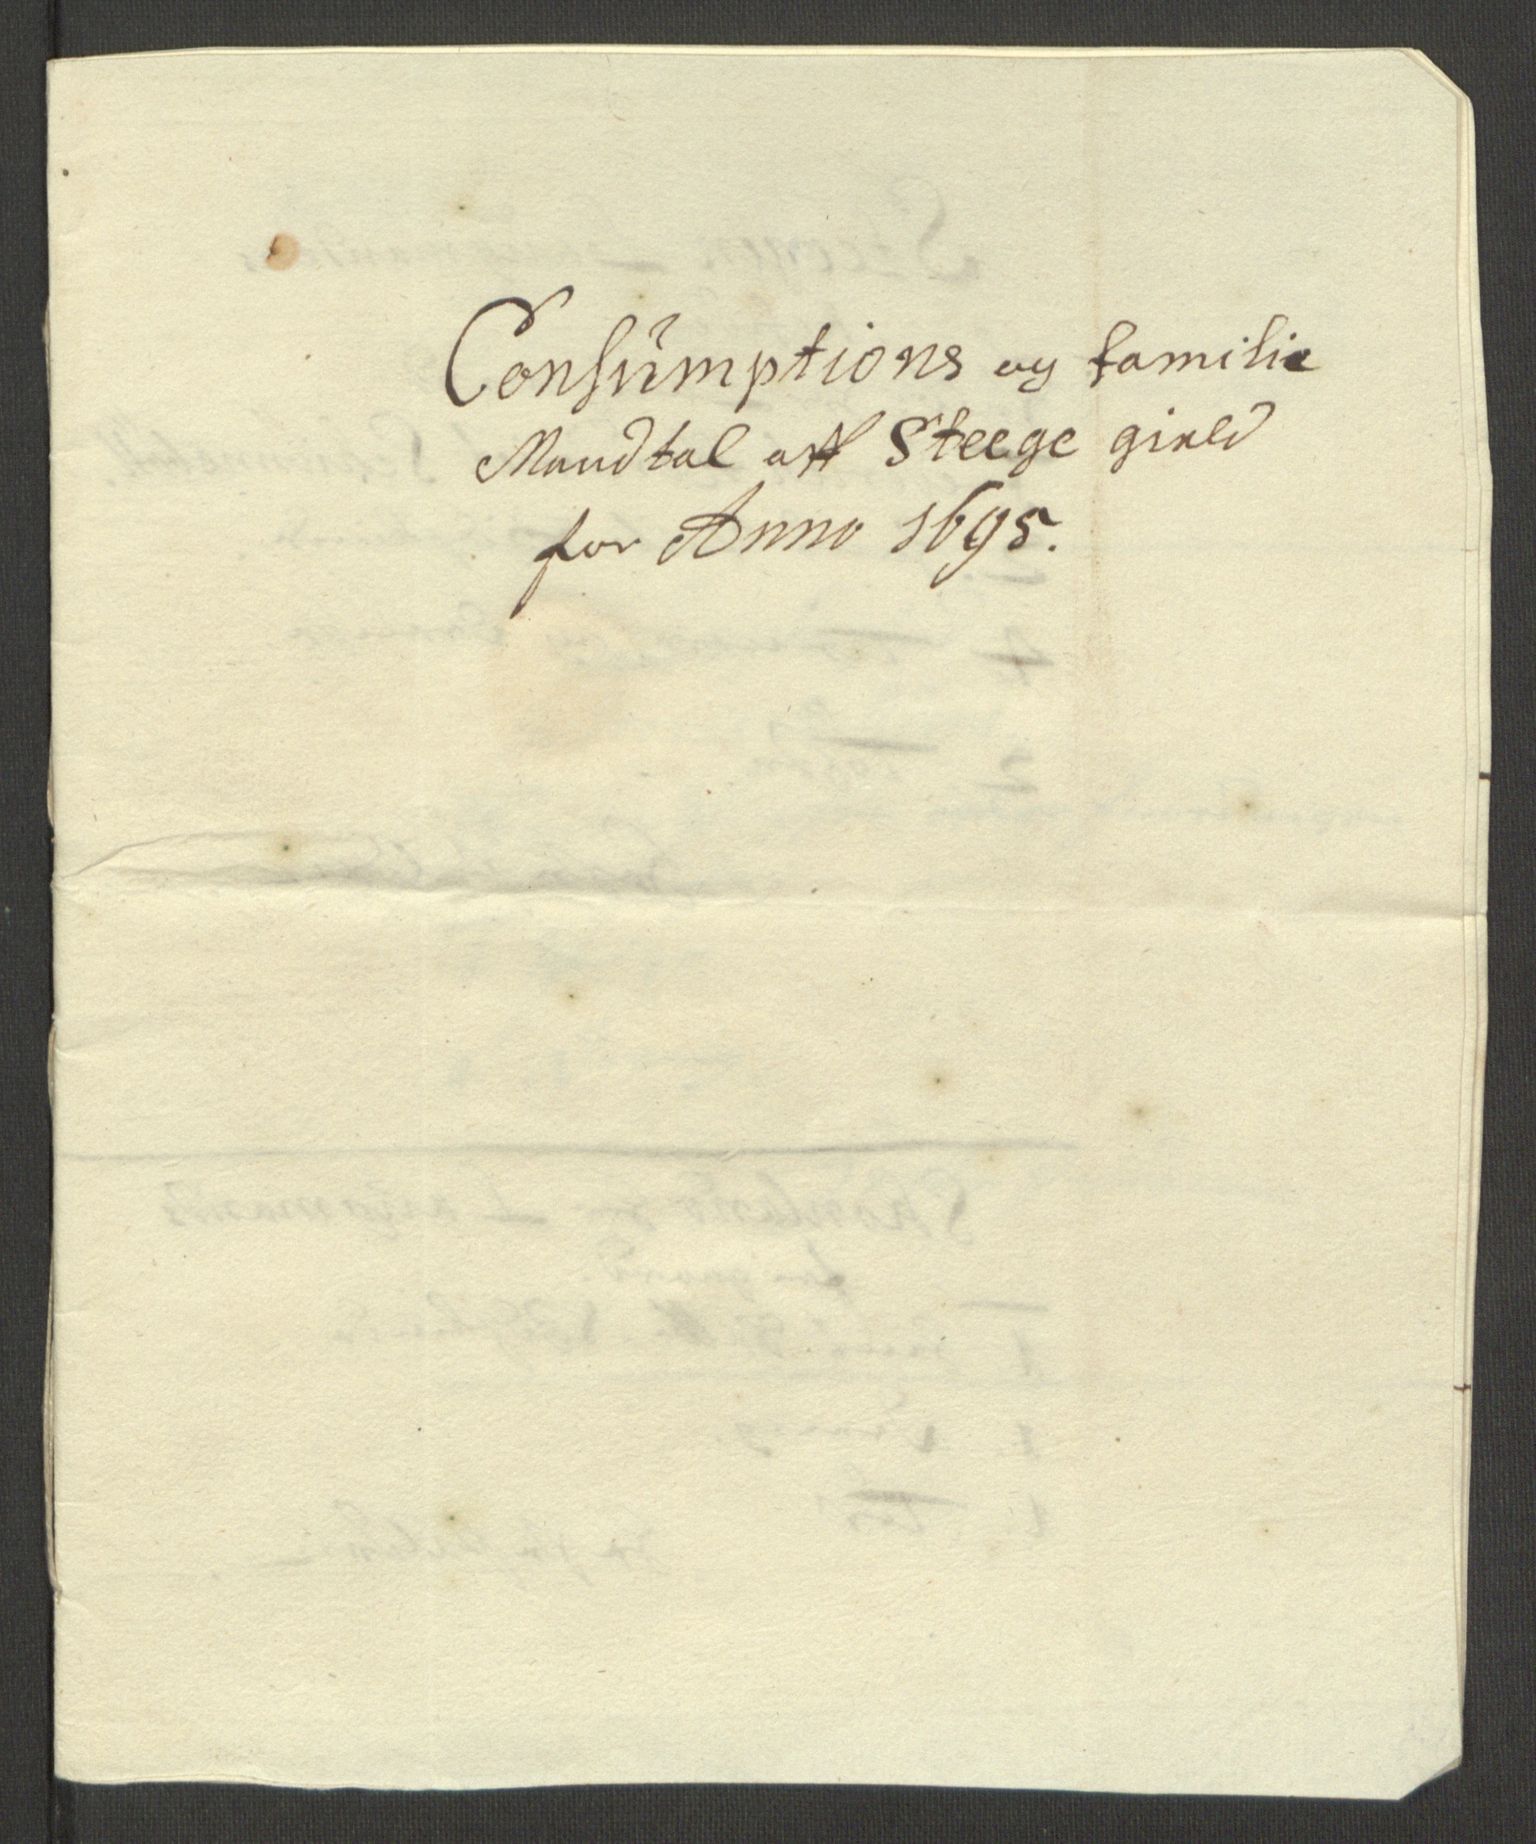 Consumptions og familie
Mandtal aff Steege gield
for Anno 1695.